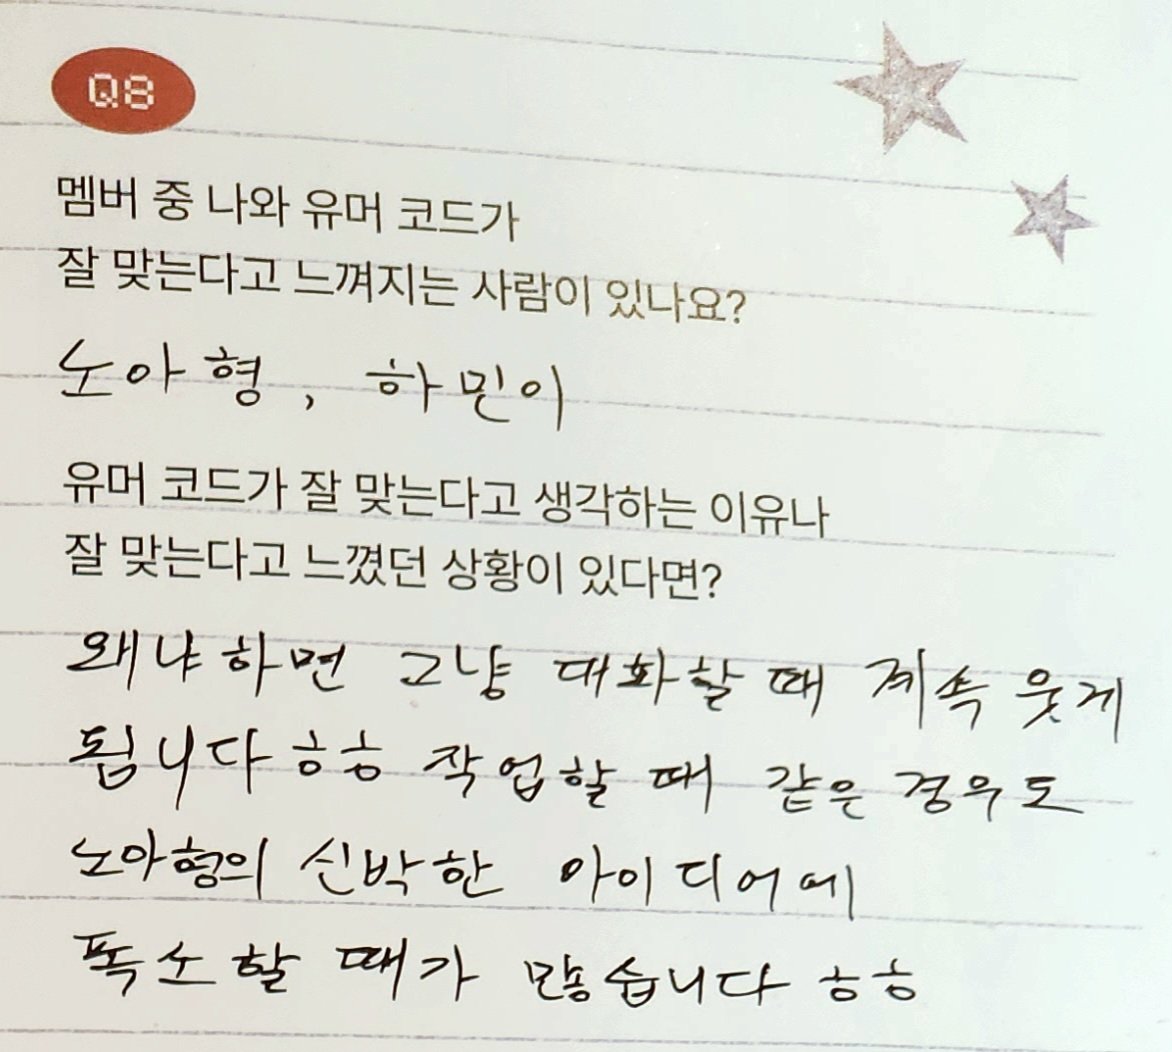 Q8
멤버 중 나와 유머 코드가
잘 맞는다고 느껴지는 사람이 있나요?
노아형, 하민이
유머 코드가 잘 맞는다고 생각하는 이유나
잘 맞는다고 느꼈던 상황이 있다면?
왜냐하면 그냥 대화할 때 계속 웃게
됩니다ㅎㅎ 작업할 때 같은 경우도
노아형의 신박한 아이디어에
폭소할 때가 많습니다 ㅎㅎ